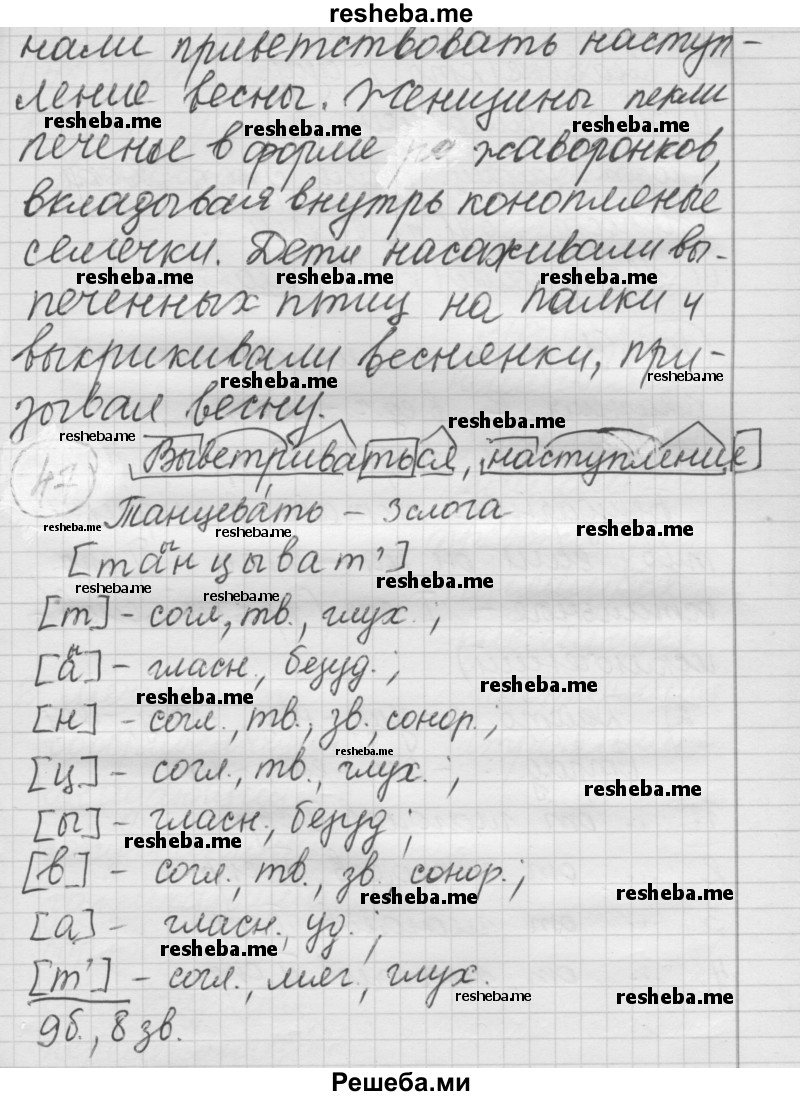 resheba.me
нали приветствовать наступ-
ление весны. Женщины пекли
resheba.me resheba.me resheba.me
печенье в форме жаворонков,
вкладывая внутрь конопленые
семечки. Дети насаживали вы-
resheba.me resheba.me resheba.me
печенных птиц на палки и
выкрикивали веснянки, при-
resheba.me resheba.me
зывая весну.
resheba.me resheba.me
Выветриваться, наступление
Танцевать – 3 слога
resheba.me resheba.me resheba.me
[таынцыват']
resheba.me resheba.me resheba.me
[т] – согл., тв., глух.;
[аы] – гласн., безуд.;
resheba.me resheba.me
[н] – согл., тв., зв., сонор.;
resheba.me
[ц] – согл., тв., глух.;
resheba.me
[ы] – гласн., безуд;
resheba.me
[в] – согл., тв., зв., сонор.;
resheba.me resheba.me
[а] – гласн., уд.;
resheba.me
[т'] – согл., мяг., глух.
resheba.me resheba.me
9б., 8 зв.
Решеба.ми